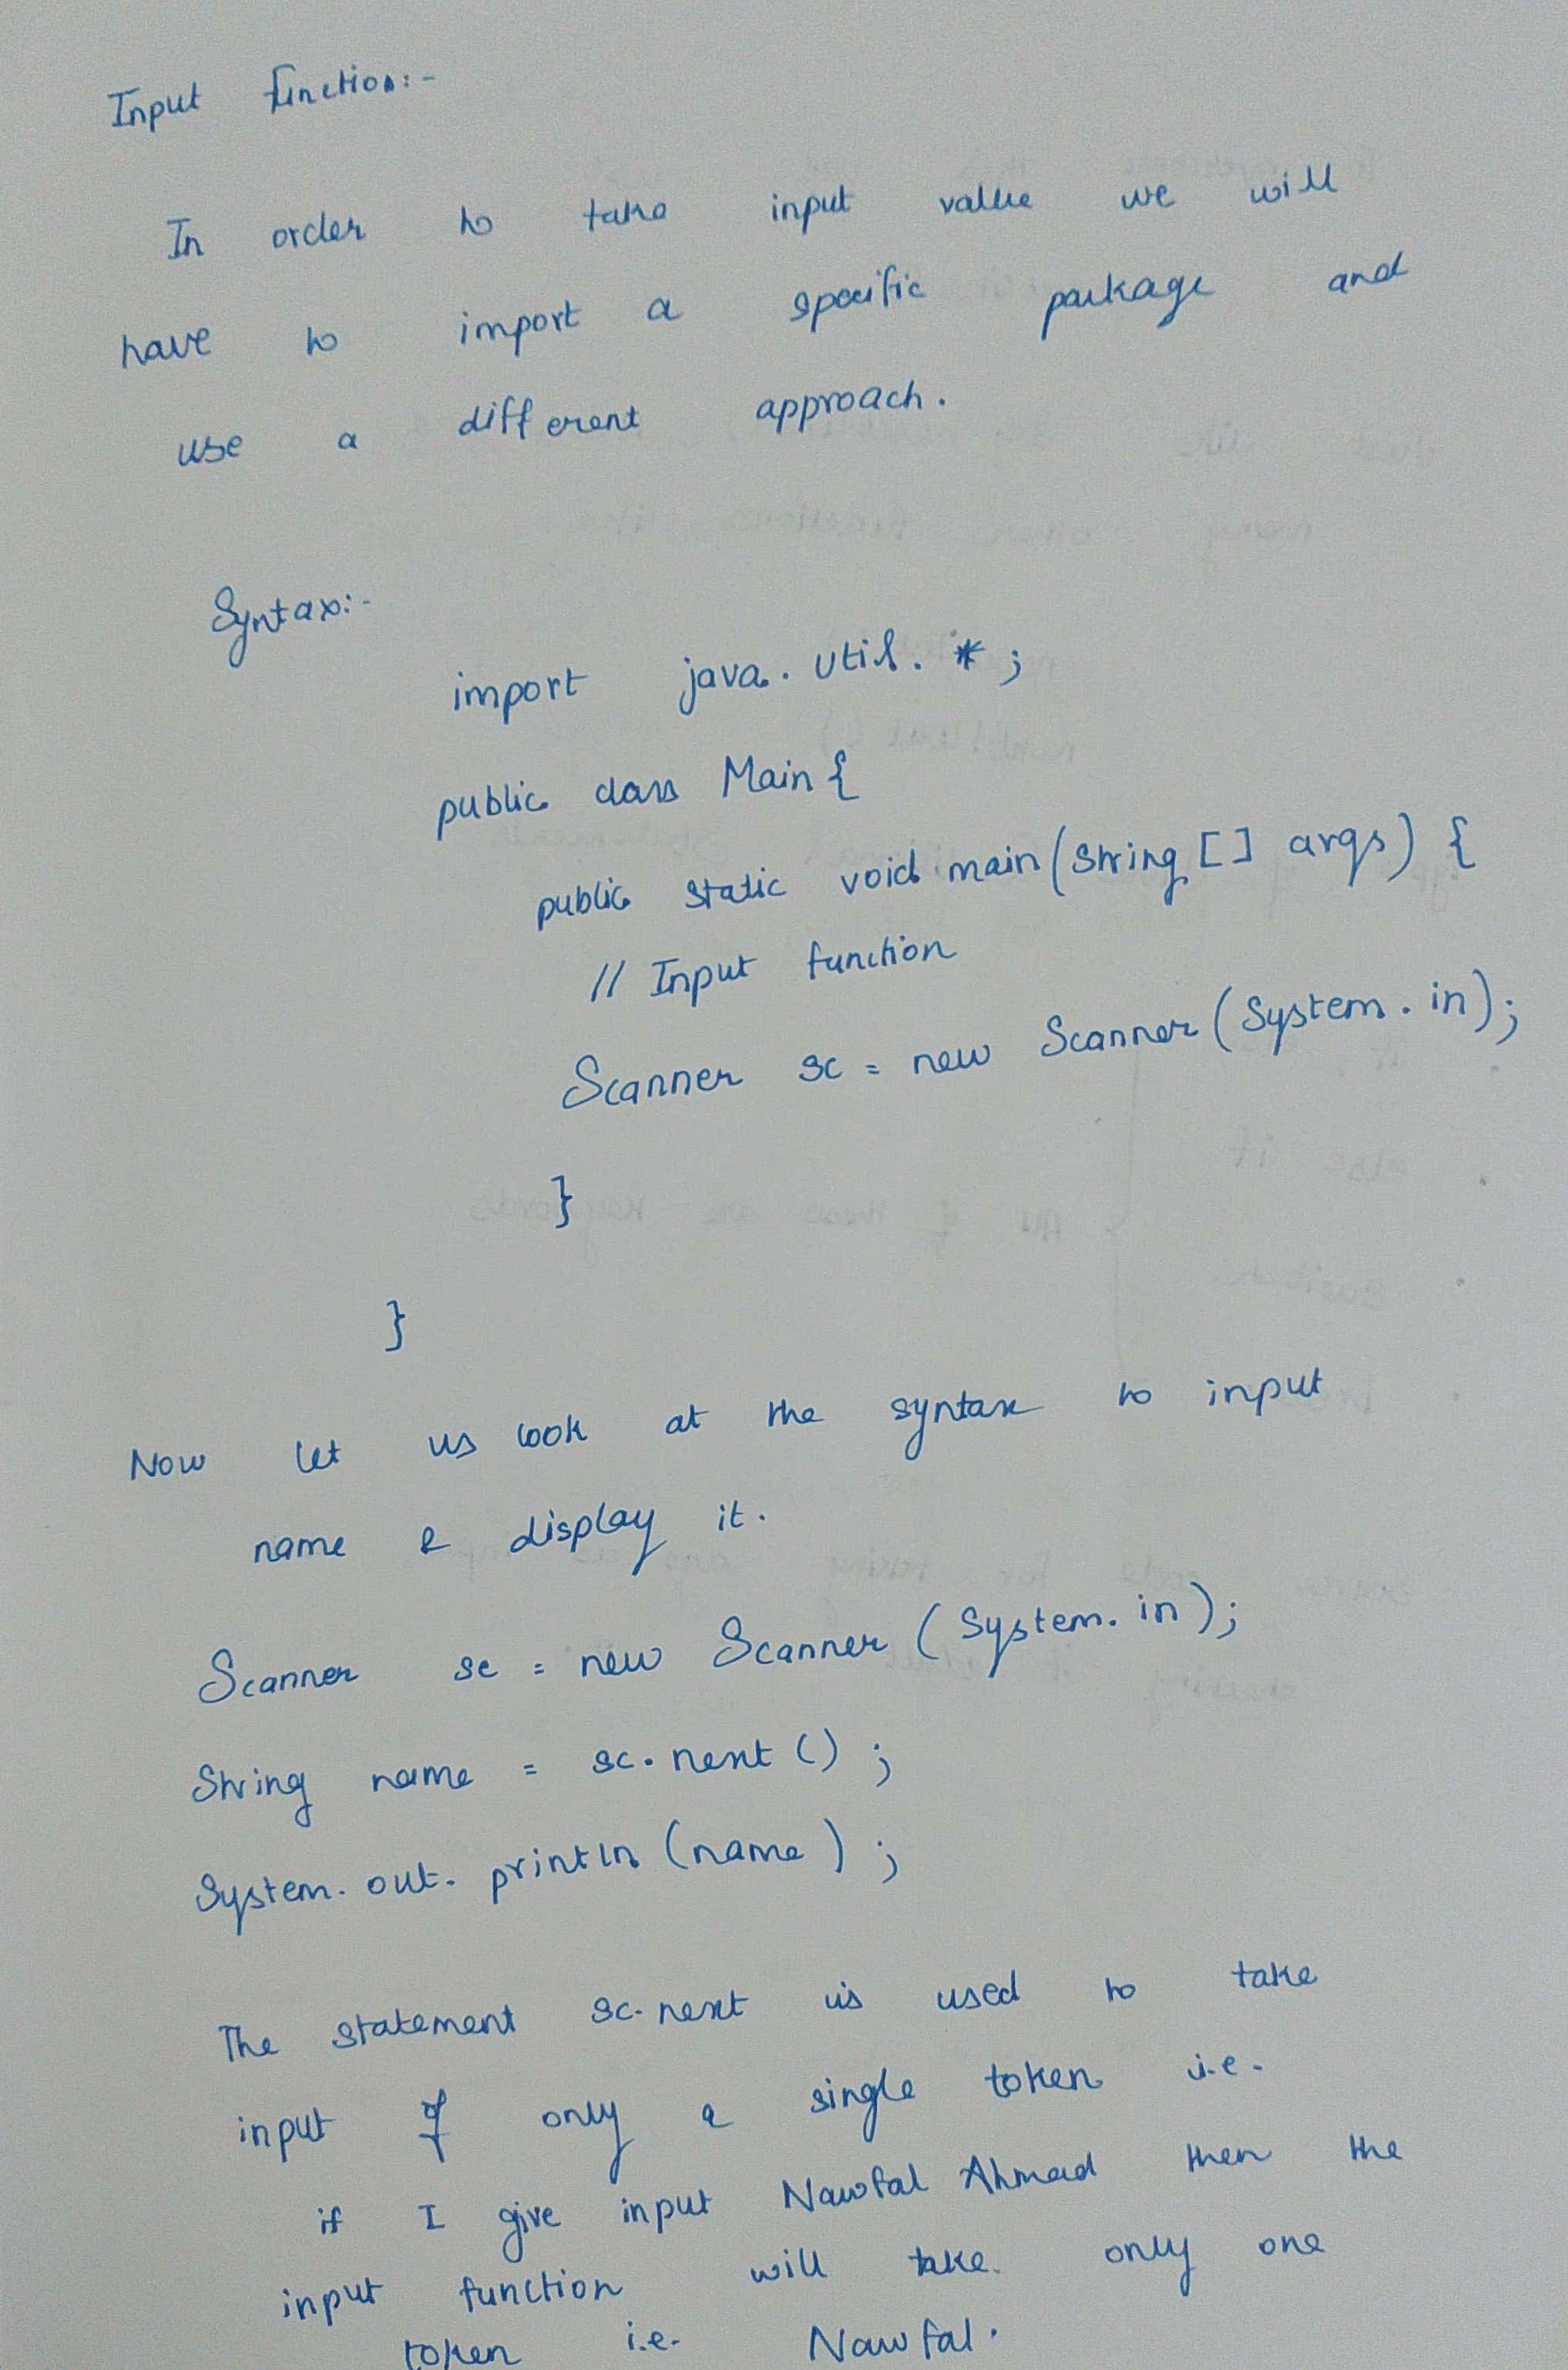 Input function:-
In order to take input value we will
have to import a specific package and
use a different approach.
Syntax:-
import java.util.*;
public class Main {
public static void main(String [] args) {
// Input function
Scanner sc = new Scanner(System.in);
}
}
Now let us look at the syntax to input
name & display it.
Scanner sc = new Scanner (System.in);
String name = sc.next();
System.out.println (name);
The statement sc.next is used to take
input of only a single token i.e.
if I give input Nawfal Ahmad then the
input function will take only one
token i.e. Nawfal.